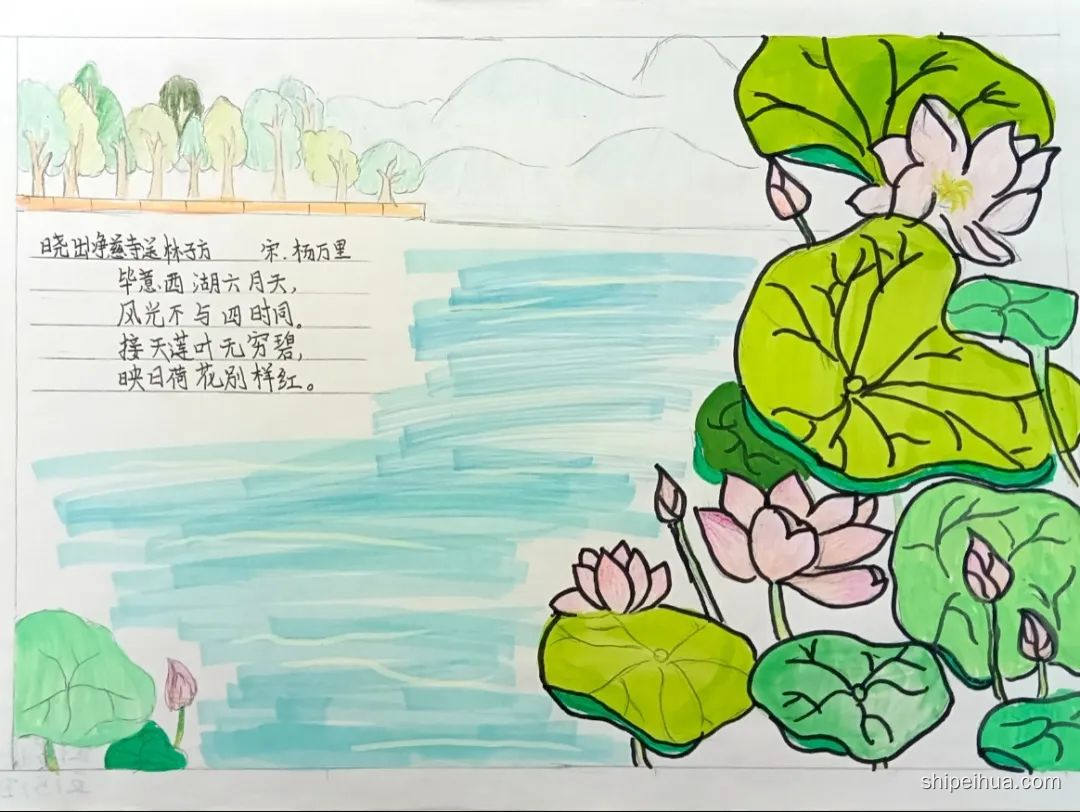 晓出净慈寺送林子方 宋.杨万里
毕竟西湖六月天,
风光不与四时同。
接天莲叶无穷碧,
映日荷花别样红。
shipeihua.com